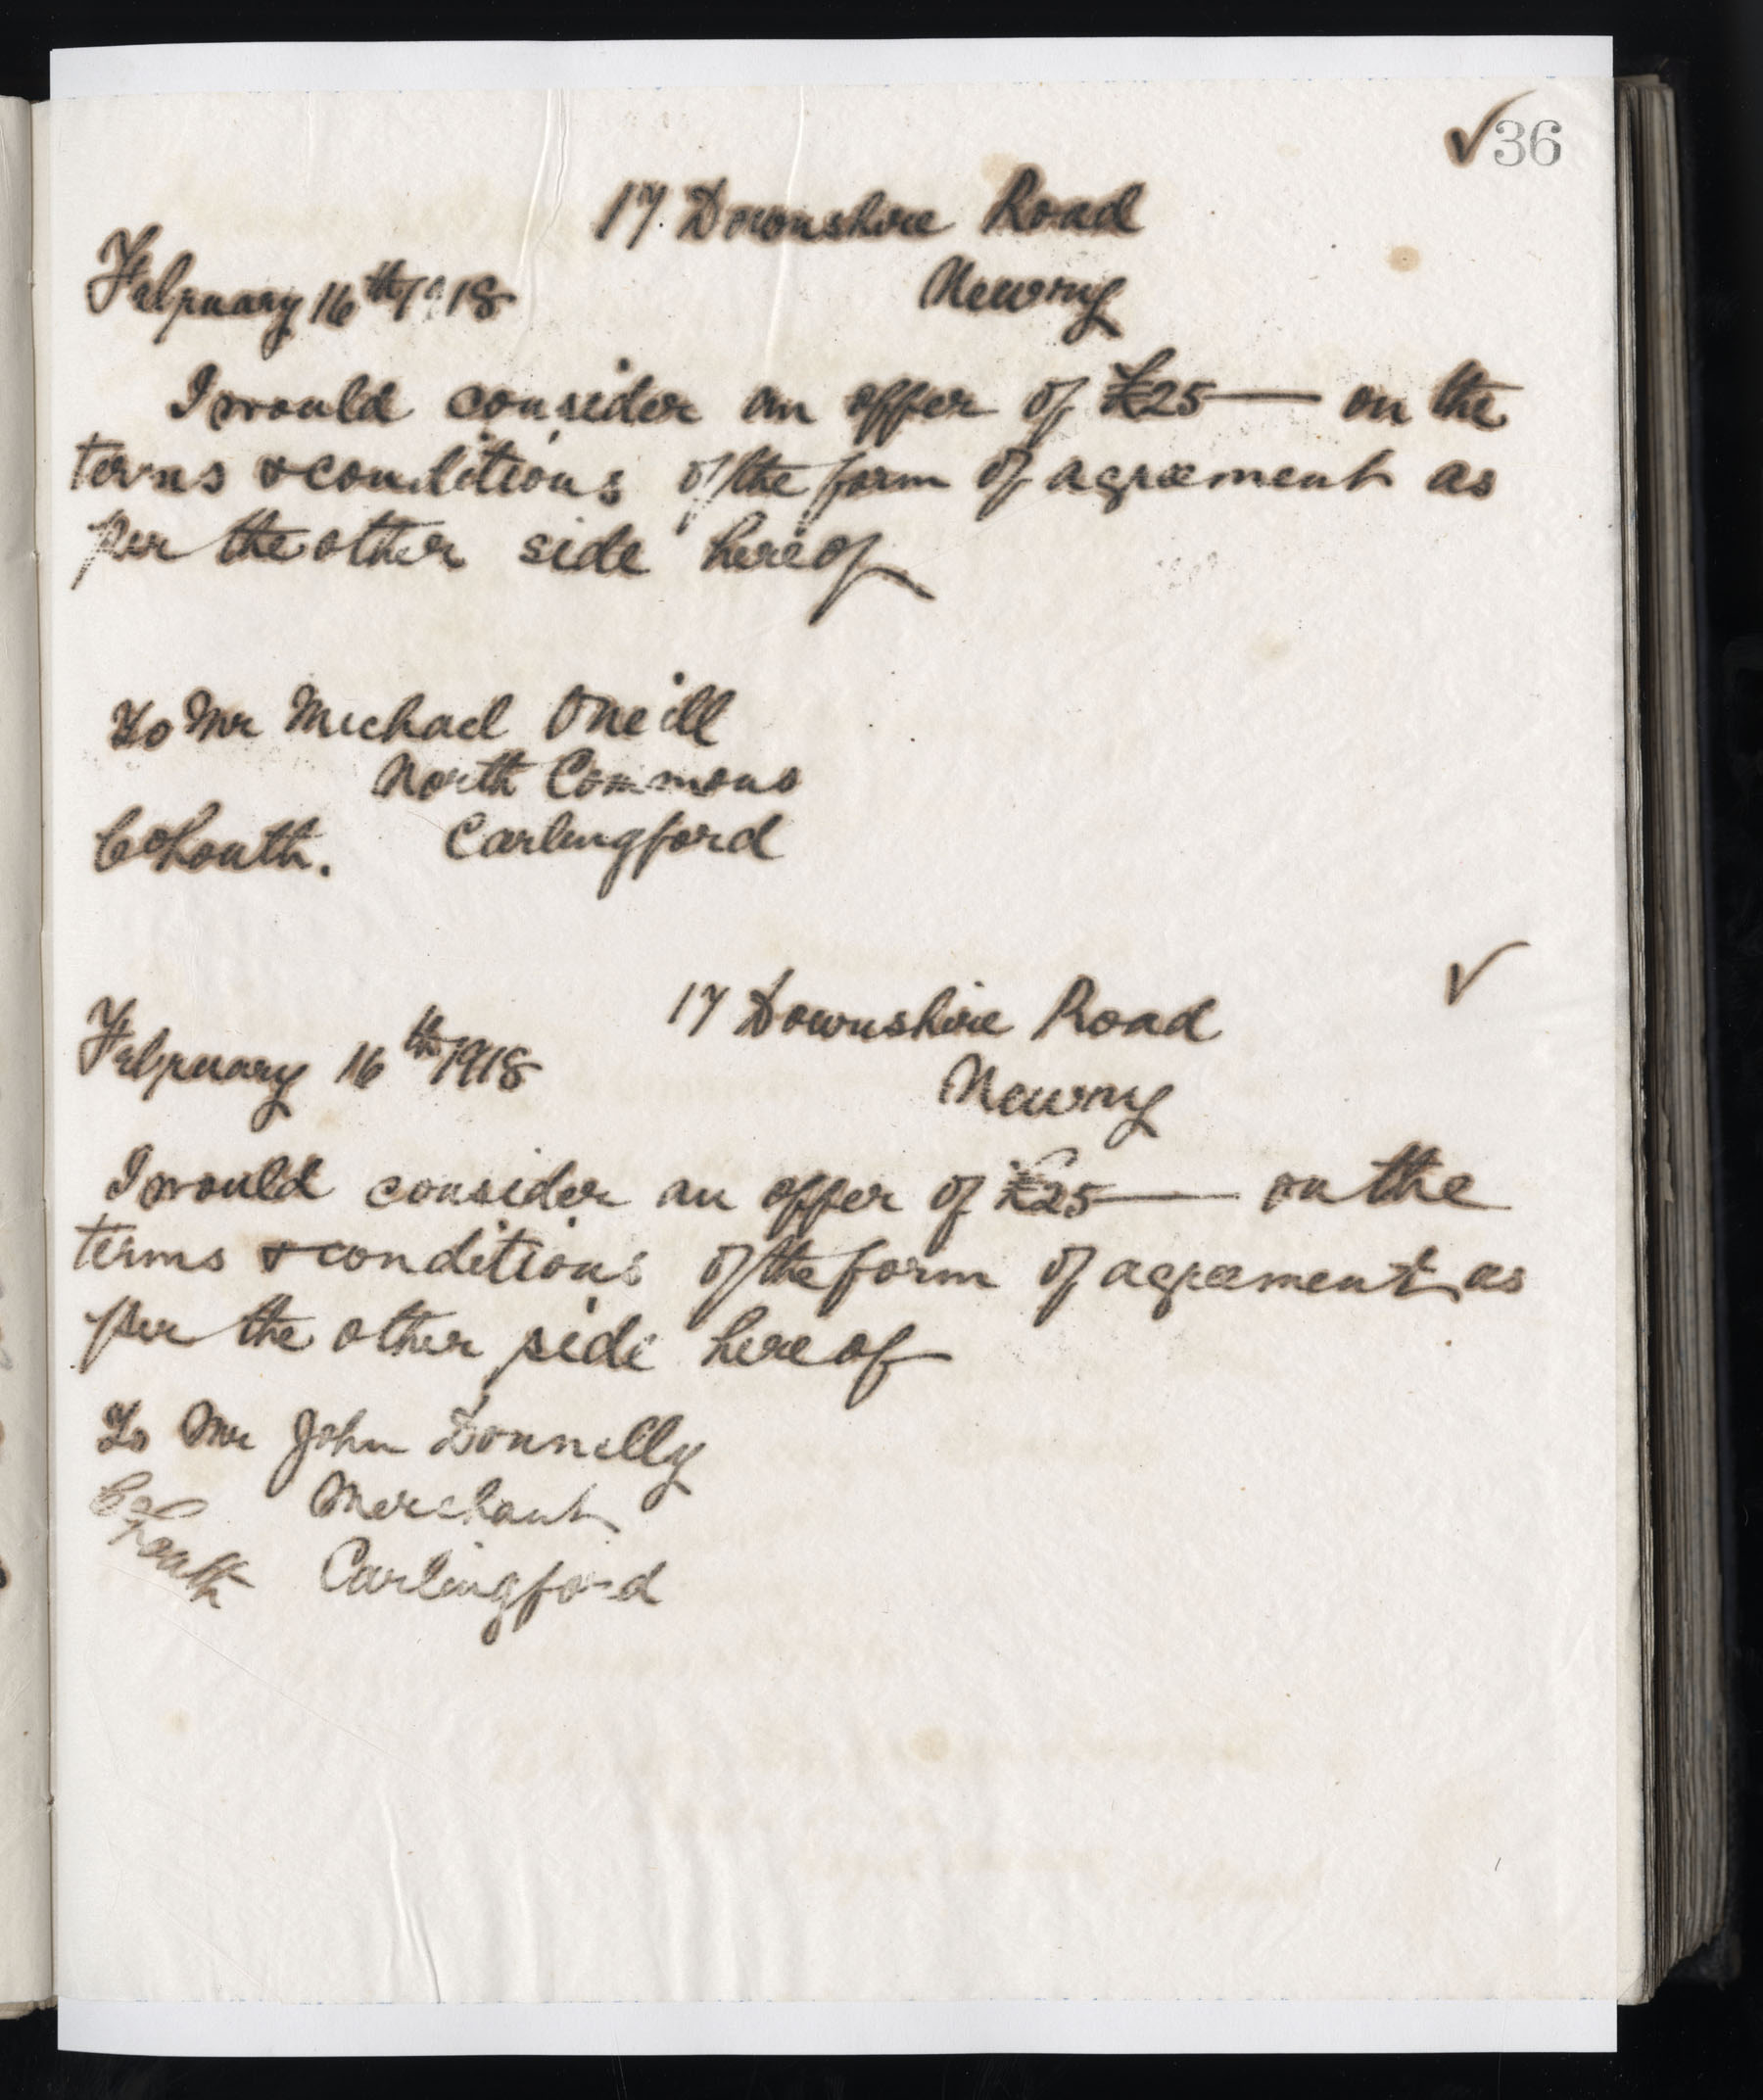 ✓36
17. Downshire Road
February 16th 1918 Newry
I would consider an offer of £25— on the
terms & conditions of the form of agreement as
per the other side hereof
To Mr Michael Oneill
North Commons
Co Louth. Carlingford
17 Downshire Road ✓
February 16th 1918 Newry
I would consider an offer of £25— on the
terms & conditions of the form of agreement as
per the other side hereof
To Mr John Donnelly
Co Merchant
Louth Carlingford